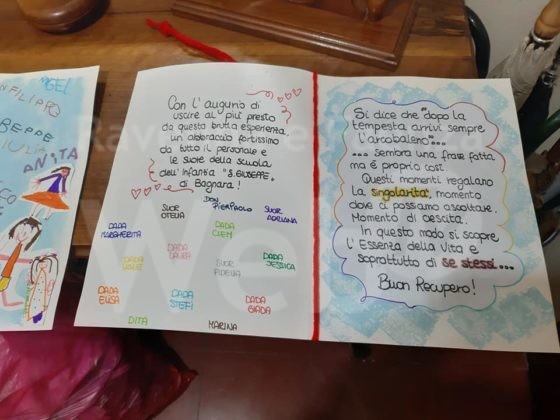 ANGEL
FILIPPO
BEPPE
GIULIA
ANITA
Con l'augurio di
uscire al più presto
da questa brutta esperienza,
un abbraccio fortissimo
da tutto il personale e
le suore della scuola
dell'infantia "S.GIUSEPPE"
di Bagnara!
DADA MARGHERITA
SUOR OTELIA
DON PIERPAOLO
DADA CLEM
SUOR ADRIANA
DADA LAURA
SUOR FIDELIA
DADA JESSICA
DADA ELISA
DADA STEFI
DADA GIADA
DITA
MARINA
Si dice che "dopo la
tempesta arrivi sempre
l'arcobaleno"...
... sembra una frase fatta
ma è proprio così.
Questi momenti regalano
la singolarità, momento
dove ci possiamo ascoltare.
Momento di crescita.
In questo modo si scopre
l'Essenza della Vita e
soprattutto di se stessi...
Buon Recupero!